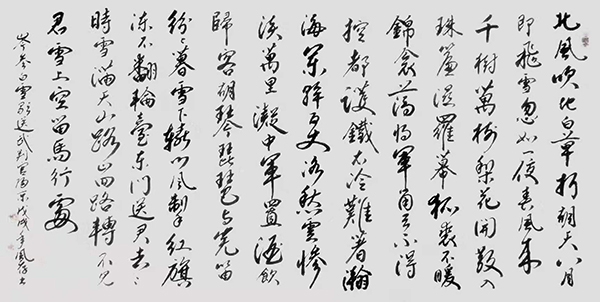 北風吹地白草折胡天八月
即飛雪忽如夜春風來
千樹萬樹梨花開散入
珠簾濕羅幕狐裘不暖
錦衾薄將軍角弓不得
控都護鐵衣冷難著瀚
海闌干百丈冰愁雲慘
淡萬里凝中軍置酒飲
歸客胡琴琵琶與羌笛
紛紛暮雪下轅門風掣紅旗
凍不翻輪臺東門送君去去
時雪滿天山路山回路轉不見
君雪上空留馬行處
岑參白雪歌送武判官歸京戊戌年風書